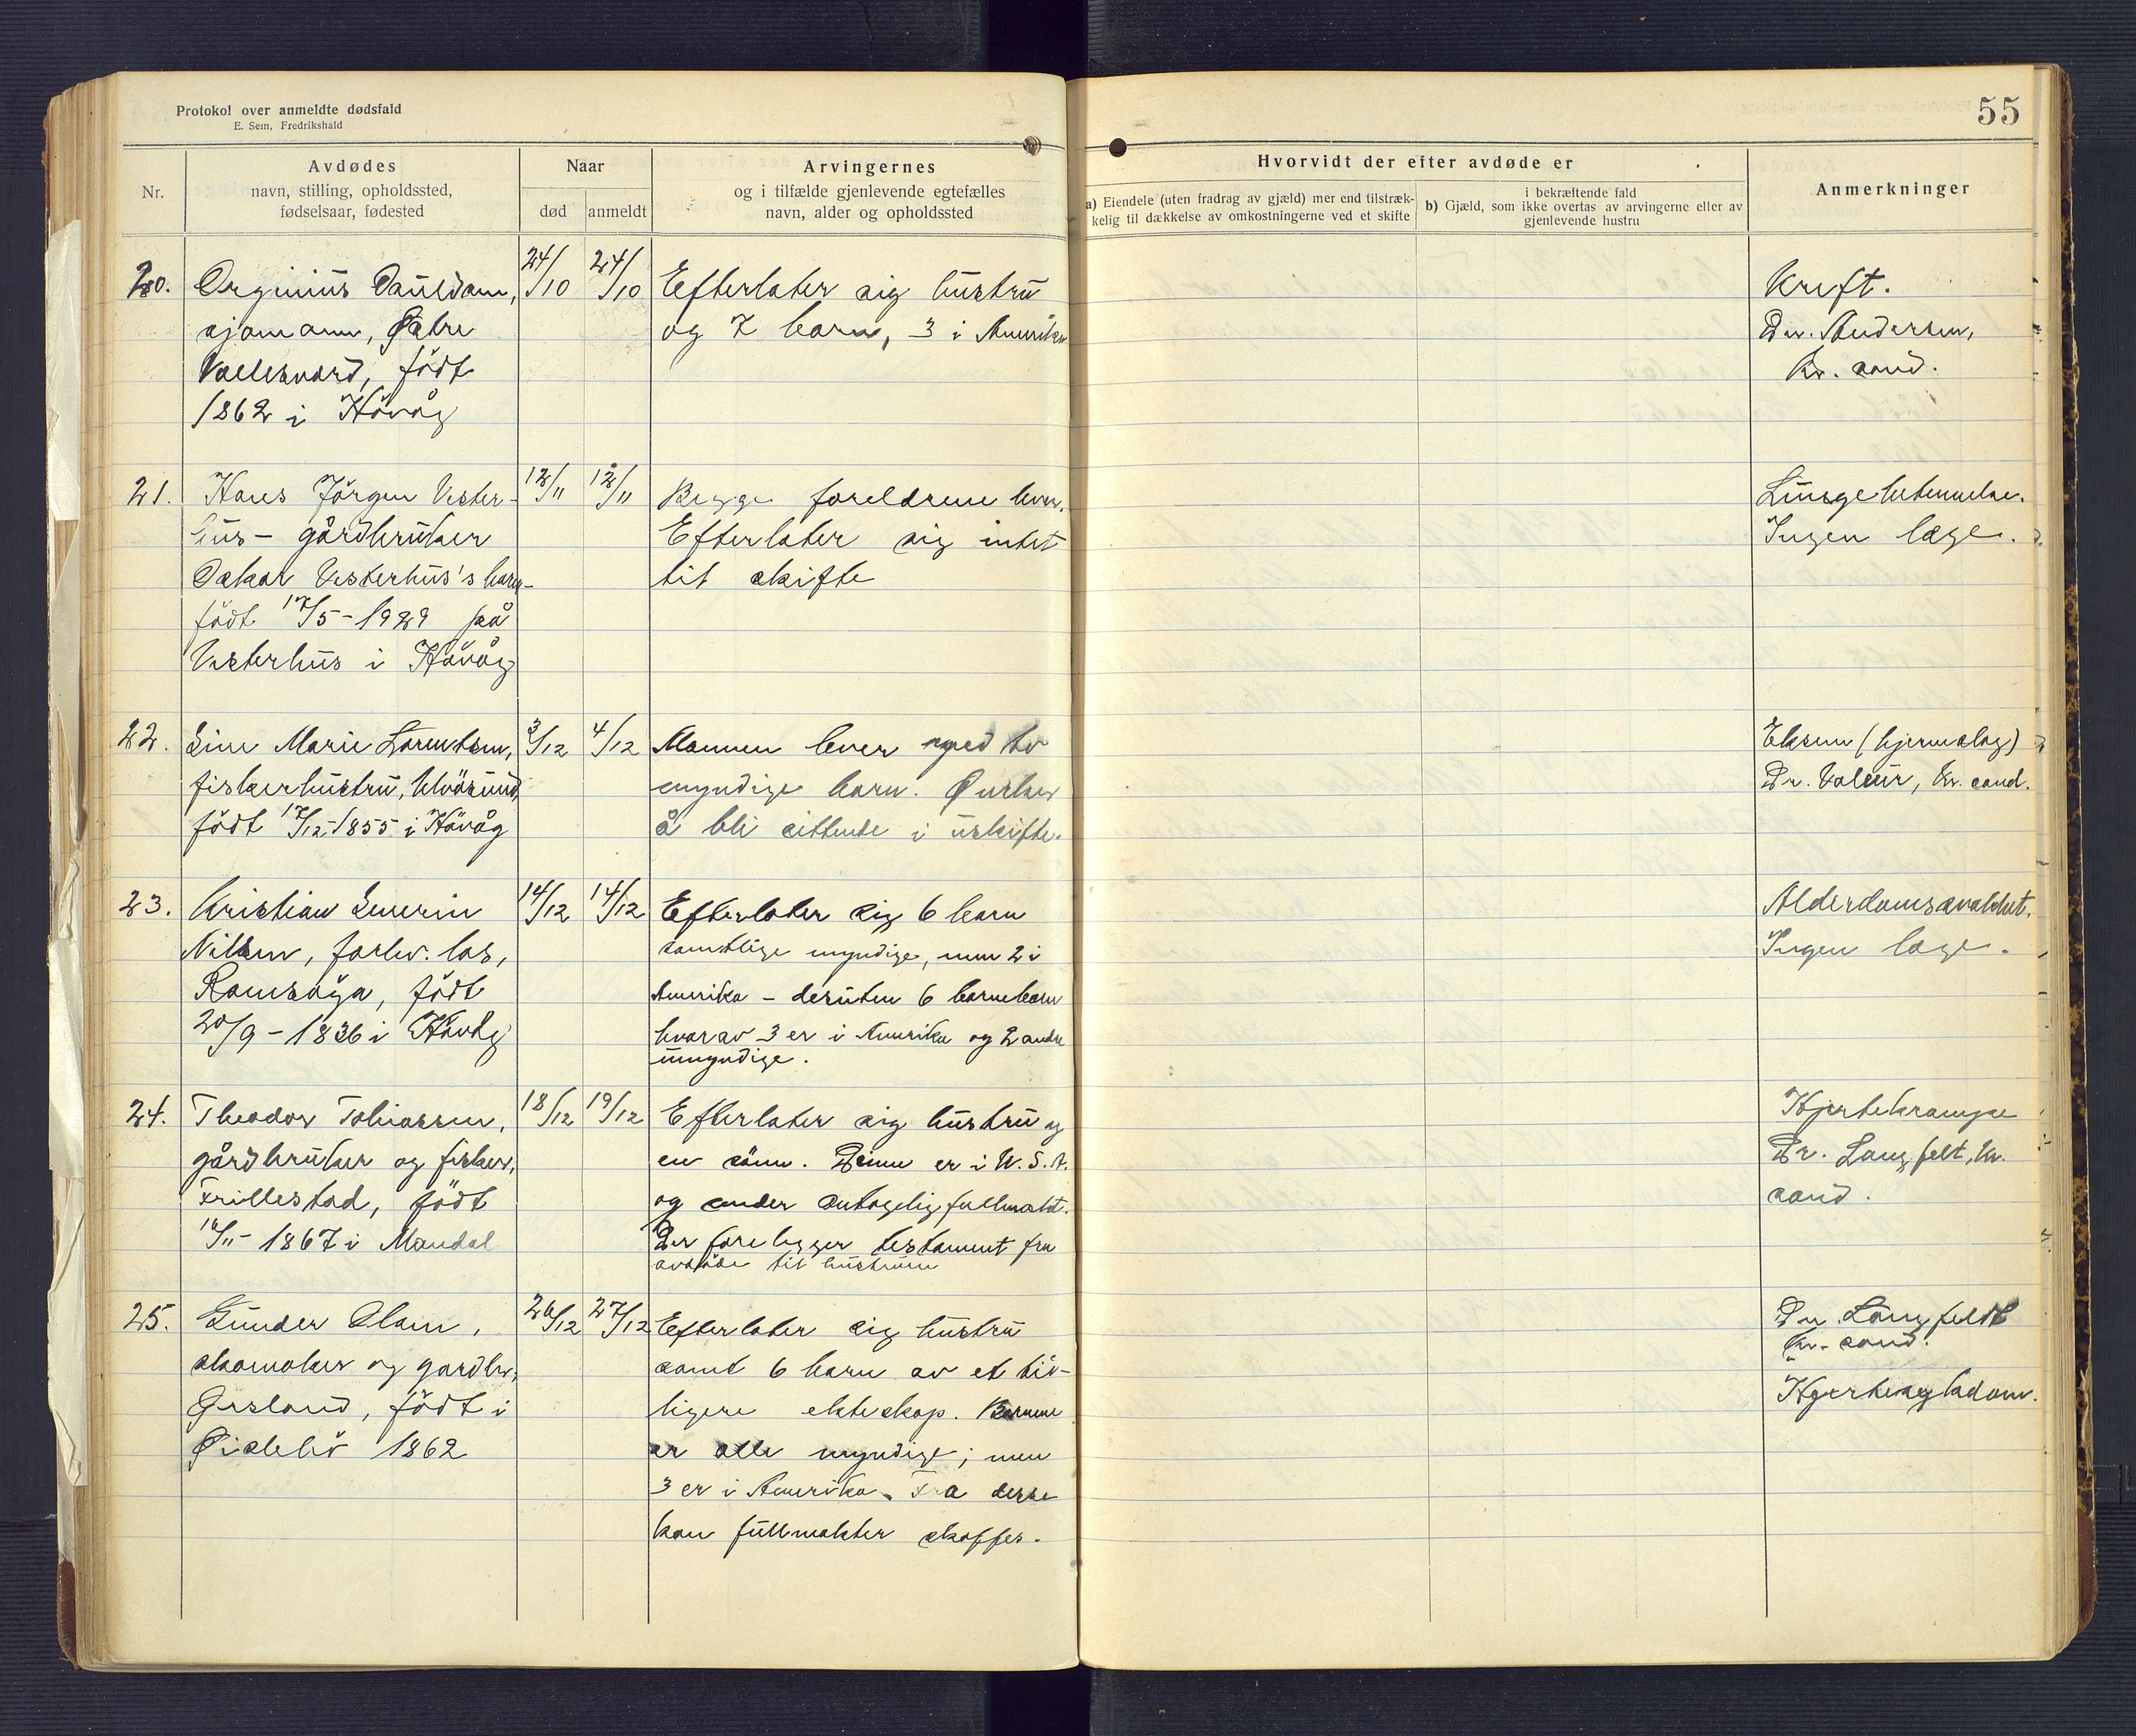 Protokol over anmeldte dødsfald
E. Sem, Fredrikshald
55
Nr.
Avdødes
navn, stilling, opholdssted,
fødselsaar, fødested
Naar
død
anmeldt
Arvingernes
og i tilfælde gjenlevende egtefælles
navn, alder og opholdssted
Hvorvidt der efter avdøde er
a) Eiendele (uten fradrag av gjæld) mer end tilstræk-
kelig til dækkelse av omkostningerne ved et skifte
i bekræftende fald
b) Gjæld, som ikke overtas av arvingerne eller av
gjenlevende hustru
Anmerkninger
20.
sjømann, Østre
Vallesverd, født
1862 i Høvåg
24/10
24/10
Efterlater sig hustru
og 7 barn, 3 i Amerika
Kreft.
Dr. Andersen,
Kr. sand.
21.
Hans Jørgen Vester-
hus - gårdbruker
Oskar Vesterhus's barn -
født 17/5 - 1929 på
Vesterhus i Høvåg
12/11
12/11
Begge foreldrene lever.
Efterlater sig intet
til skifte
Lungebetennelse.
Ingen læge.
22.
Sine Marie Lorentsen,
fiskerhustru, Ulvøsund,
født 17/12-1855 i Høvåg
3/12
4/12
Mannen lever med to
myndige barn. Ønsker
å bli sittende i uskifte.
(hjerneslag)
Dr. Valeur, Kr. sand.
23.
Kristian Severin
Nilsen, forhv. los,
Ramsøya, født
20/9 - 1836 i Høvåg
14/12
14/12
Efterlater sig 6 barn
samtlige myndige, men 2 i
Amerika - desuten 6 barnebarn
hvorav 3 er i Amerika og 2 andre
umyndige.
Alderdomssvakhet.
Ingen læge.
24.
Theodor Tobiassen,
gårdbruker og fisker,
Trillestad, født
16/11 - 1867 i Mandal
18/12
19/12
Efterlater sig hustru og
en sønn. Denne er i U.S.A.
og sender antagelig fullmakt.
Der foreligger testament fra
avdøde til hustruen
Hjertekrampe
Dr. Langfelt, Kr.
sand.
25.
Gunder Olsen,
skomaker og gardbr.,
født i
Øislebø 1862
26/12
27/12
Efterlater sig hustru
samt 6 barn av et tid-
ligere ekteskap. Barnene
er alle myndige; men
3 er i Amerika. Fra disse
kan fullmakter skaffes.
Dr. Langfeldt
Kr. sand.
Hjertesykdom.